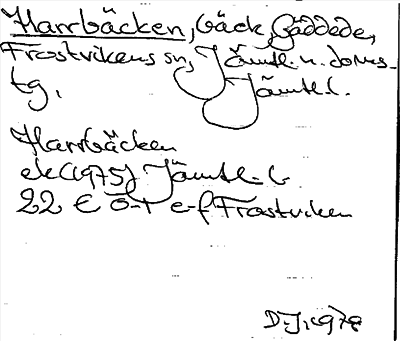 Harrbäcken, bäck, Gäddede,
Frostvikens sn, Jämtl. n. doms-
tg, Jämtl.
Harrbäcken
ek (1975) Jämtl. L
22 E Ö-t e-f Frostviken
D.J. 1978